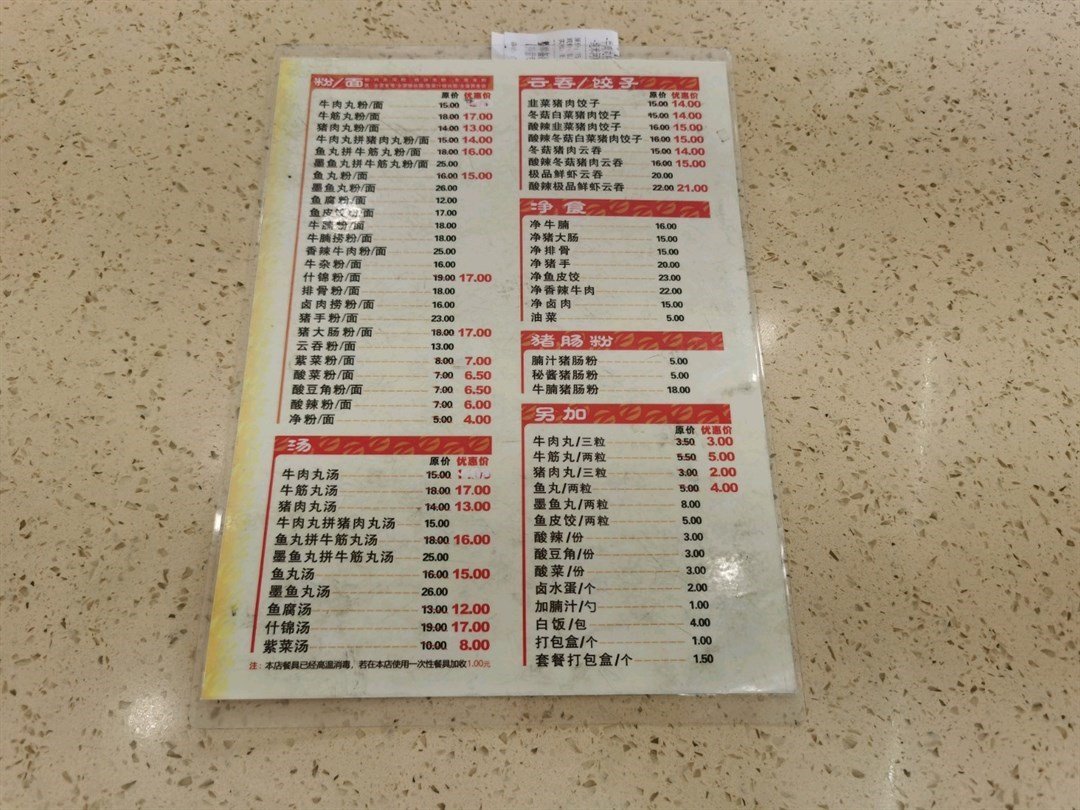 粉/面
原价 优惠价
牛肉丸粉/面 15.00
牛筋丸粉/面 18.00 17.00
猪肉丸粉/面 14.00 13.00
牛肉丸拼猪肉丸粉/面 15.00 14.00
鱼丸拼牛筋丸粉/面 18.00 16.00
墨鱼丸拼牛筋丸粉/面 25.00
鱼丸粉/面 16.00 15.00
墨鱼丸粉/面 26.00
鱼腐粉/面 12.00
鱼皮饺粉/面 17.00
牛腩粉/面 18.00
牛腩捞粉/面 18.00
香辣牛肉粉/面 25.00
牛杂粉/面 16.00
什锦粉/面 19.00 17.00
排骨粉/面 18.00
卤肉捞粉/面 16.00
猪手粉/面 23.00
猪大肠粉/面 18.00 17.00
云吞粉/面 13.00
紫菜粉/面 8.00 7.00
酸菜粉/面 7.00 6.50
酸豆角粉/面 7.00 6.50
酸辣粉/面 7.00 6.00
净粉/面 5.00 4.00
汤
原价 优惠价
牛肉丸汤 15.00
牛筋丸汤 18.00 17.00
猪肉丸汤 14.00 13.00
牛肉丸拼猪肉丸汤 15.00
鱼丸拼牛筋丸汤 18.00 16.00
墨鱼丸拼牛筋丸汤 25.00
鱼丸汤 16.00 15.00
墨鱼丸汤 26.00
鱼腐汤 13.00 12.00
什锦汤 19.00 17.00
紫菜汤 10.00 8.00
注：本店餐具已经高温消毒，若在本店使用一次性餐具加收1.00元
云吞/饺子
原价 优惠价
韭菜猪肉饺子 15.00 14.00
冬菇白菜猪肉饺子 15.00 14.00
酸辣韭菜猪肉饺子 16.00 15.00
酸辣冬菇白菜猪肉饺子 16.00 15.00
冬菇猪肉云吞 15.00 14.00
酸辣冬菇猪肉云吞 16.00 15.00
极品鲜虾云吞 20.00
酸辣极品鲜虾云吞 22.00 21.00
净食
净牛腩 16.00
净猪大肠 15.00
净排骨 15.00
净猪手 20.00
净鱼皮饺 23.00
净香辣牛肉 22.00
净卤肉 15.00
油菜 5.00
猪肠粉
腩汁猪肠粉 5.00
秘酱猪肠粉 5.00
牛腩猪肠粉 18.00
另加
原价 优惠价
牛肉丸/三粒 3.50 3.00
牛筋丸/两粒 5.50 5.00
猪肉丸/三粒 3.00 2.00
鱼丸/两粒 5.00 4.00
墨鱼丸/两粒 8.00
鱼皮饺/两粒 5.00
酸辣/份 3.00
酸豆角/份 3.00
酸菜/份 3.00
卤水蛋/个 2.00
加腩汁/勺 1.00
白饭/包 4.00
打包盒/个 1.00
套餐打包盒/个 1.50